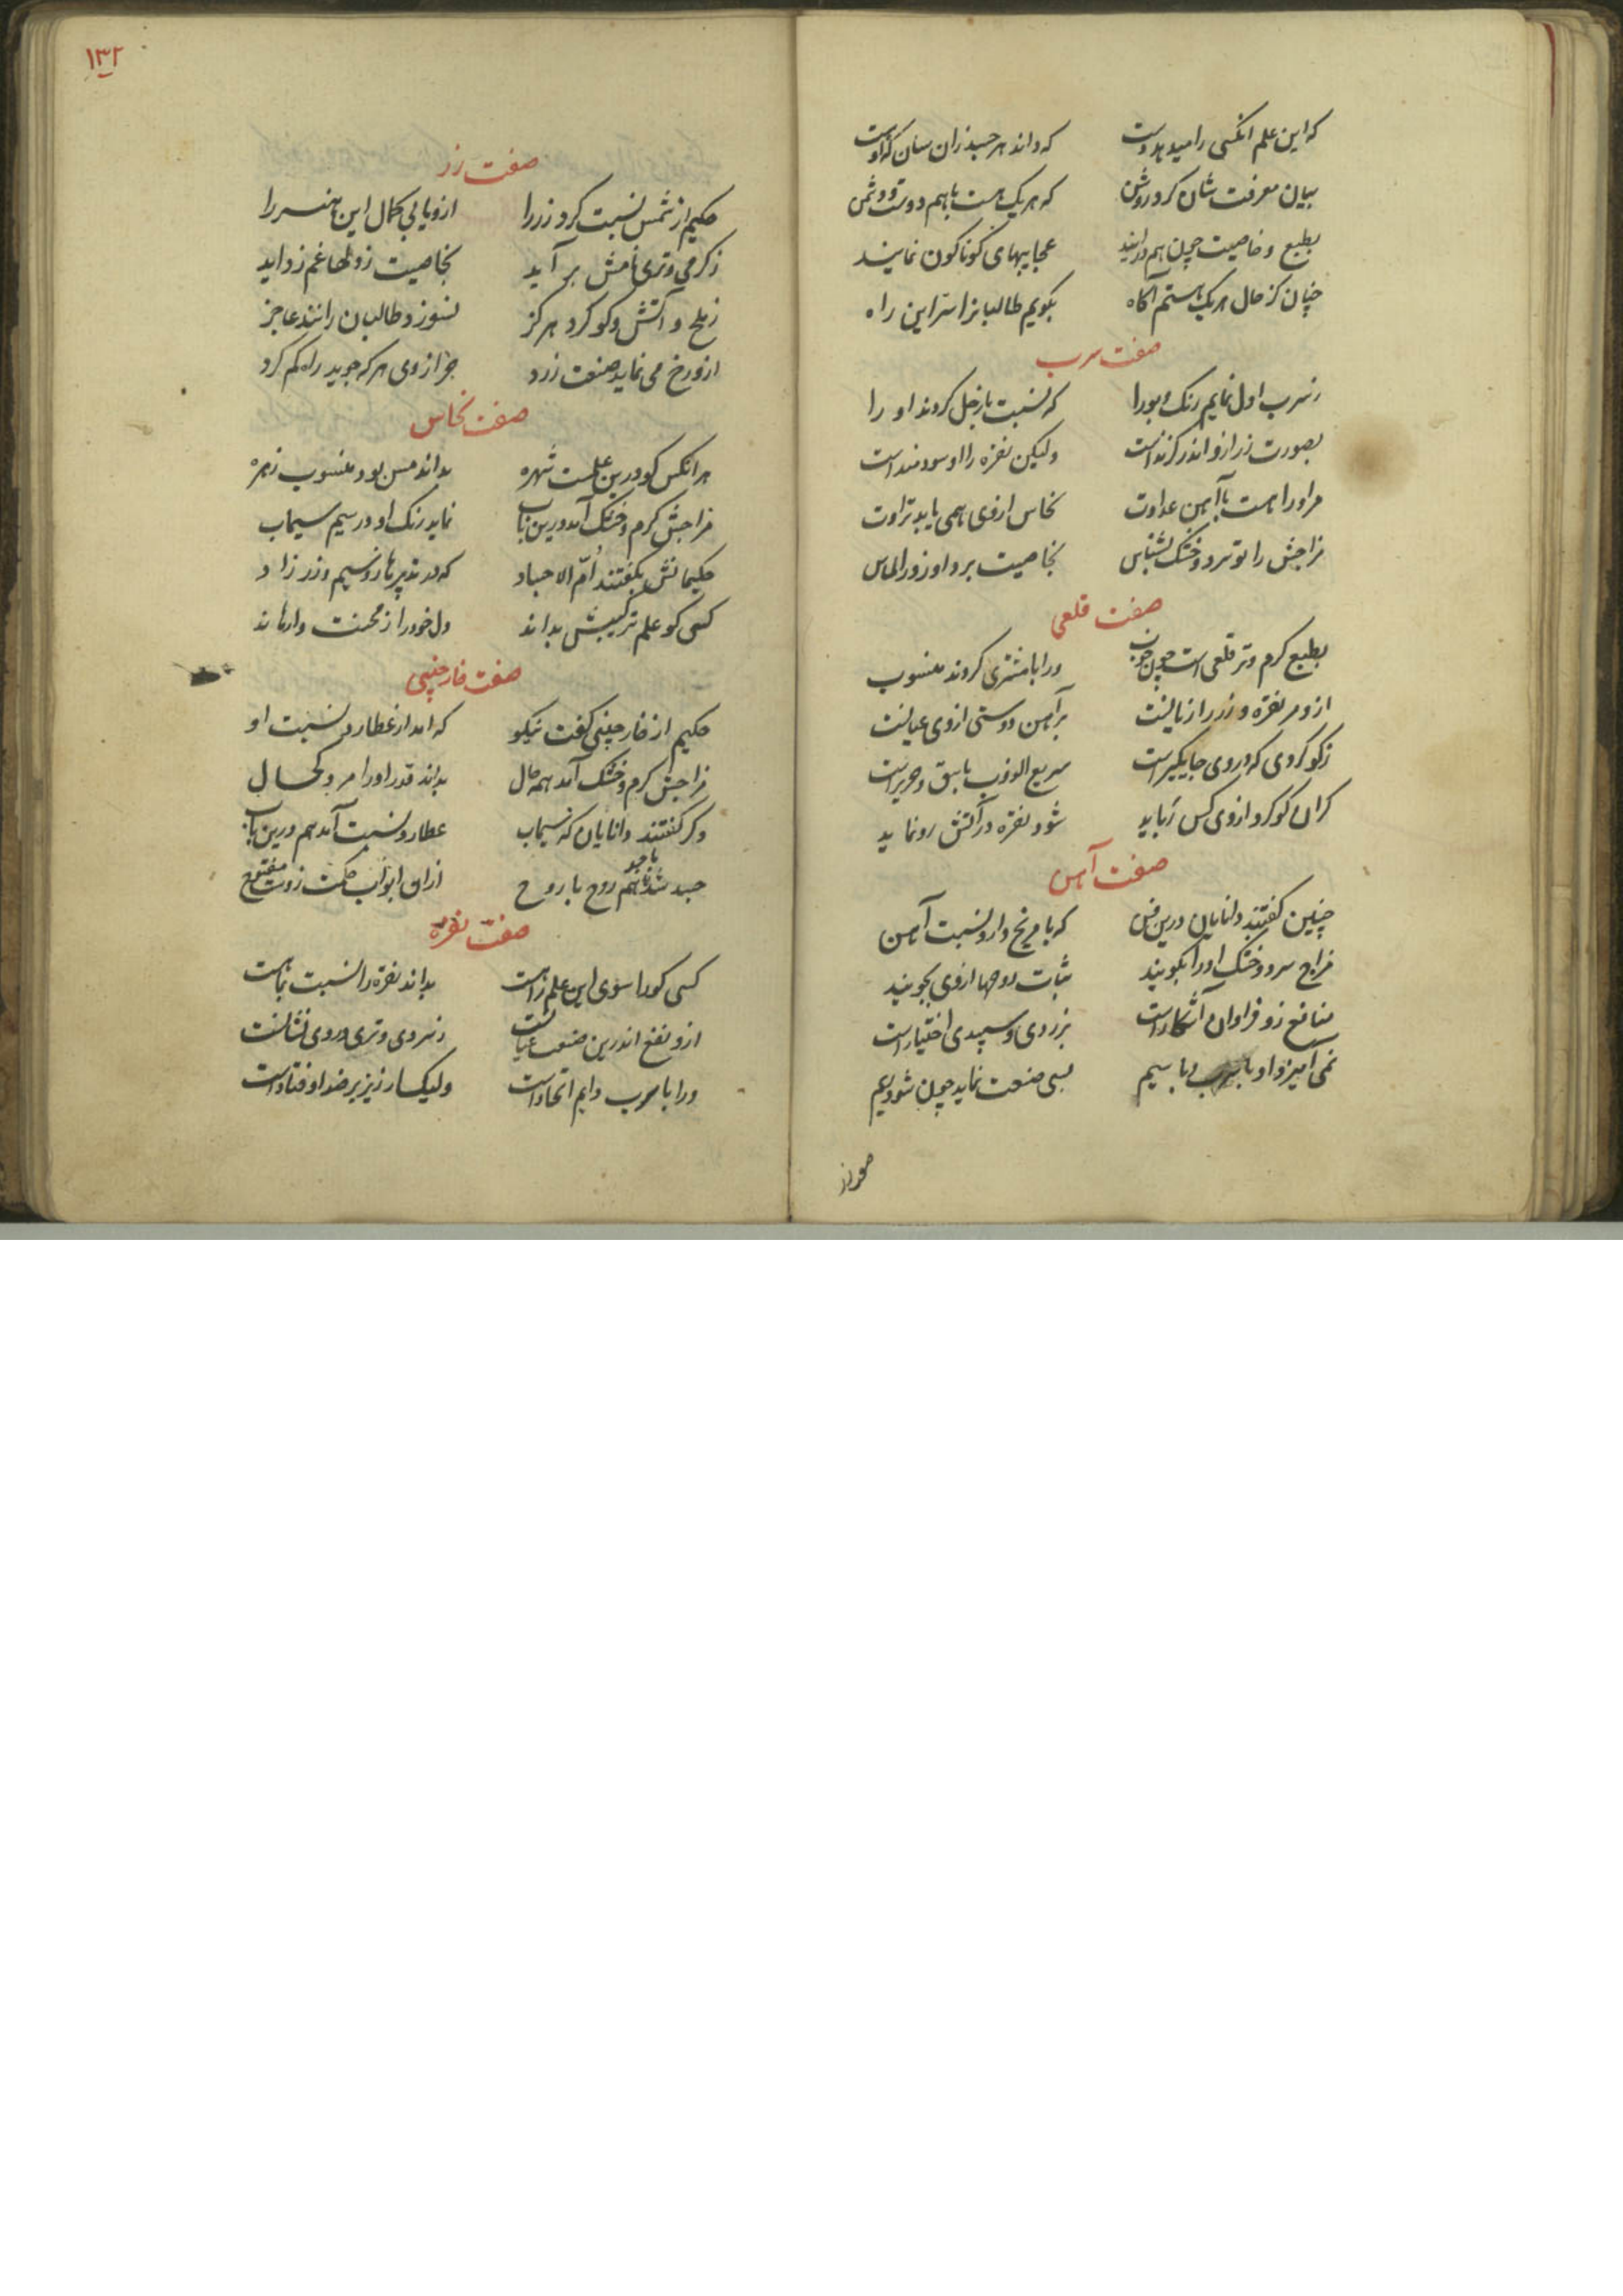 که این علم انکسی را میدهد دست که داند هر جسد زان سان که اوست
بیان معرفت شان کرد روشن که هر یک هست باهم دوست و دشمن
بطبع و خاصیت چون هم درایند عجایبهای کوناکون نمایند
چنان کز حال هر یک هستم آکاه بکویم طالبانرا سر این راه
صفت سرب
ز سرب اول نمایم رنک و بو را که نسبت با زحل کردند او را
بصورت زر ازو اندر کزند است ولیکن نقره را او سودمند است
مر او را هست با آهن عداوت نحاس ازوی همی یابد تراوت
مزاجش را تو سرد و خشک بشناس بخاصیت برد او زور الماس
صفت قلعی
بطبع کرم و تر قلعی است چون خون ورا با مشتری کردند منسوب
ازو مر نقره و زر را زیانست بر آهن دوستی ازوی عیانست
زکوکردی که در وی جایکیر است سریع الذوب با بیق و صریر است
کران کوکرد ازوی کس رباید شود نقره در آتش رو نماید
صفت آهن
چنین کفتند دانایان درین فن که با مریخ دارد نسبت آهن
مزاج سرد و خشک او را بکویند ثبات روحها ازوی بجویند
منافع زو فراوان آشکار است بزردی و سپیدی اختیار است
نمی آمیزد او با سرب و با سیم بسی صنعت نماید چون شود ریم
۱۳۲
صفت زر
حکیم از شمس نسبت کرد زر را ازو یابی کمال این هنر را
ز کرمی و تری نامش بر آید بخاصیت ز دلها غم زداید
ز ملح و آتش و کوکرد هرکز نسوزد طالبان را نند عاجز
ازو رخ می نماید صنعت زرد جز از وی هر که جوید راه کم کرد
صفت نحاس
هر انکس کو درین علمست شهره بداند مس بود منسوب زهره
مزاجش کرم و خشک آمد درین باب نماید رنک او در سیم سیماب
حکیمانش بکفتند ام الاجساد که در تدبیرها زو سیم و زر زاد
کسی کو علم ترکیبش بداند دل خود را ز محنت وارهاند
صفت خارچینی
حکیم از خارچینی کفت نیکو که امد از عطارد نسبت او
مزاجش کرم و خشک آمد همه حال بداند قدر او را مرد کحال
دکر کفتند دانایان که سیماب عطارد نسبت آمد هم درین باب
جسد شد با جسد هم روح با روح ازان ابواب حکمت زوست مفتوح
صفت نقره
کسی کورا سوی این علم راهست بداند نقره را نسبت بماهست
ازو نفع اندرین صنعت عیانست ز سردی و تری در وی نشانست
ورا با سرب دایم اتحاد است ولیک ارزیز بر ضد اوفتاد است